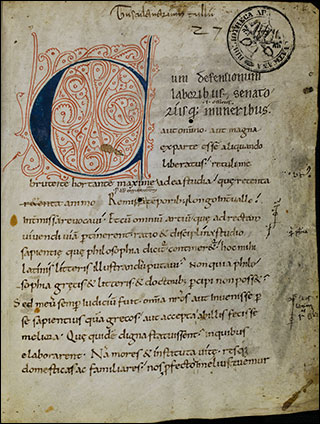 27
Cum defensionum
laboribus, senato
riisq; muneribus.
aut omnino. aut magna
ex parte esse aliquando
liberatus; retuli me
brute te hortante maxime ad ea studia; que retenta
animo Remissa temporibus longo interuallo
intermissa reuocaui. Et cum omniu artiu que ad recta
uiuendi uia ptinerent ratio & disciplina studio
sapientie que philosophia dicit contineret; hoc mihi
latinis litteris illustrandu putaui. Non quia philo
sophia grecis & litteris & doctorib; pcipi non posset
Sed meu semp iudiciu fuit. omnia nros aut inuenisse p
se sapientius qua grecos aut accepta ab illis fecisse
meliora. Que quide digna statuissent inquibus
elaborarent. Na mores & instituta uite resq;
domesticas ac familiares nos pfecto & melius tuemur